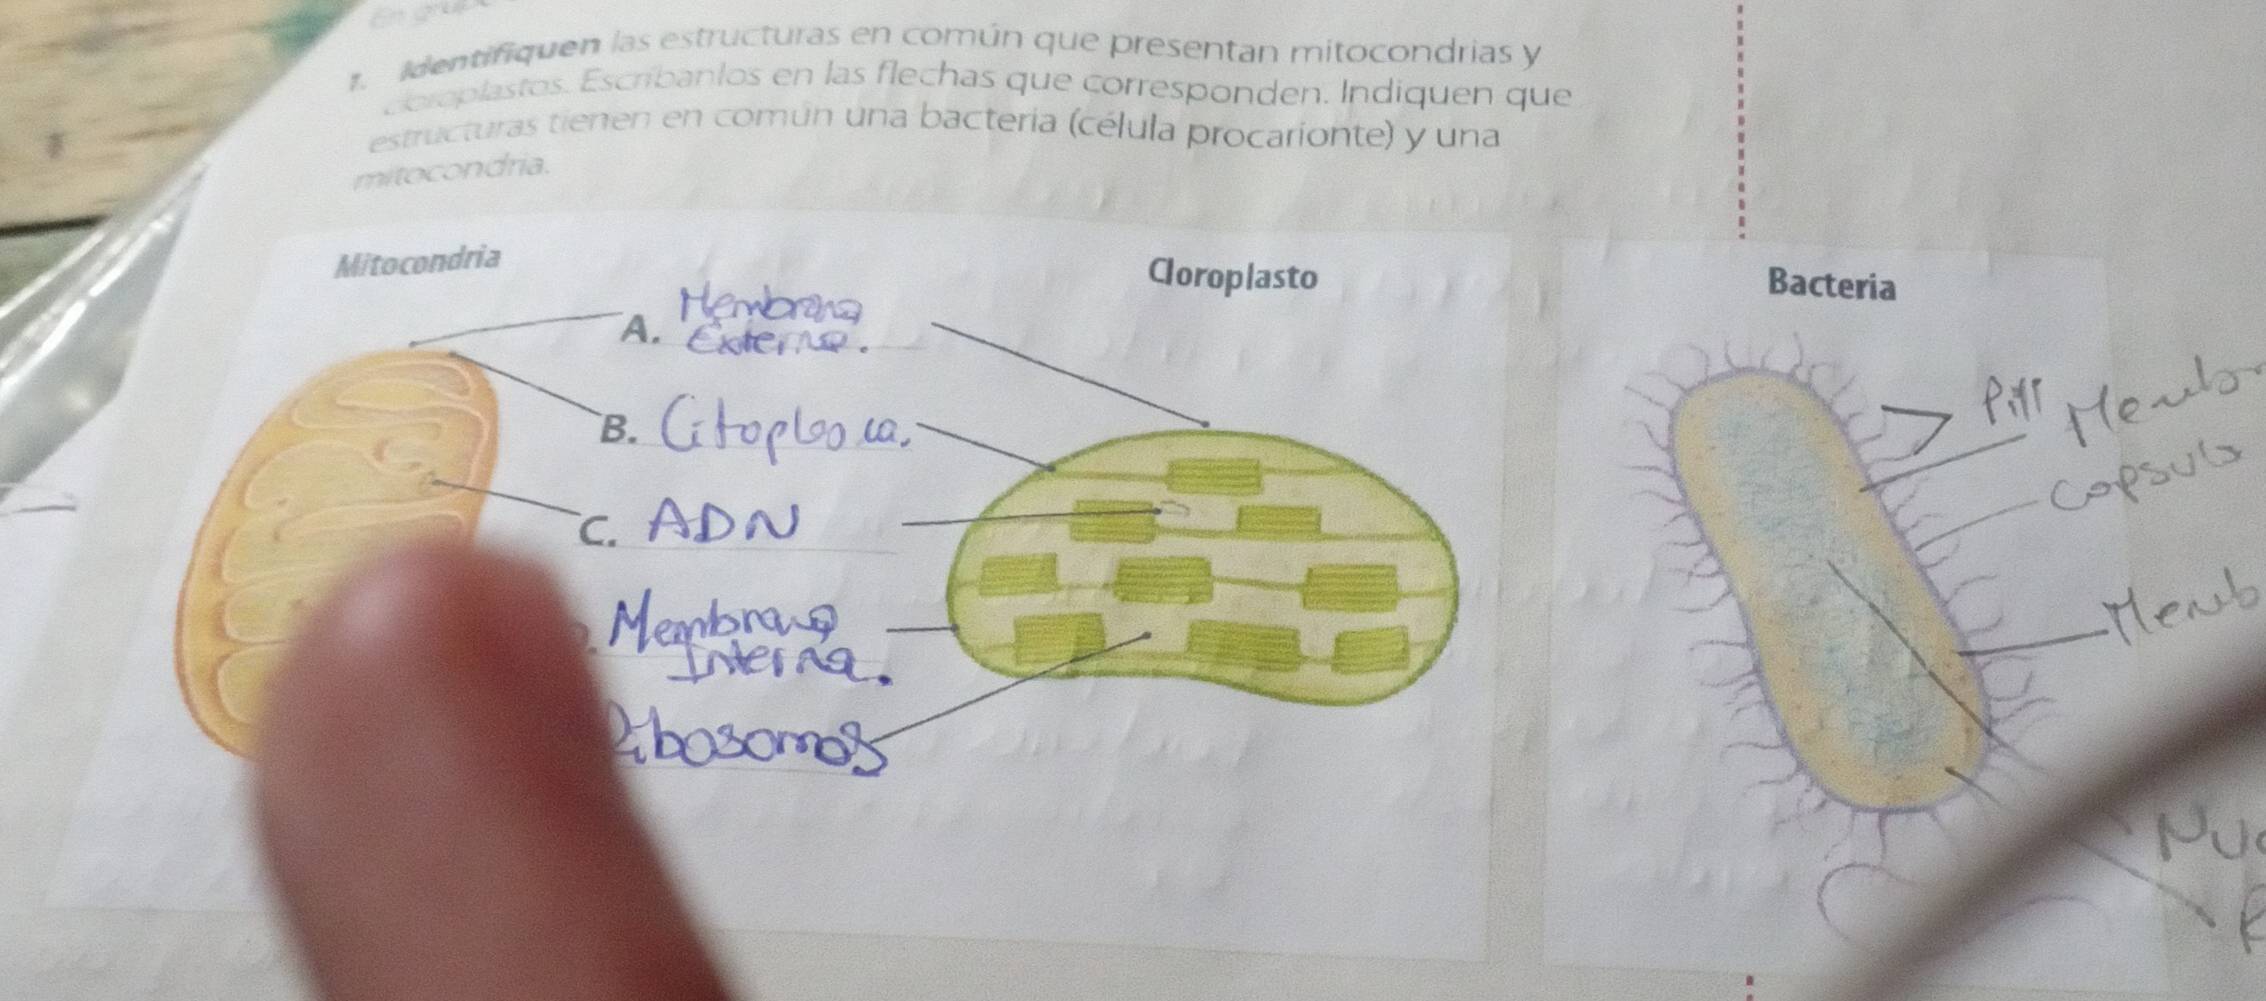 En grupo
1. Identifiquen las estructuras en común que presentan mitocondrias y
cloroplastos. Escríbanlos en las flechas que corresponden. Indiquen que
estructuras tienen en común una bacteria (célula procarionte) y una
mitocondria.
Mitocondria
Cloroplasto
Bacteria
A. Membrana
Externa.
B.
C. ADN
Membrana
Interna.
Ribosomas
Pili
Membr
Capsula
Memb
Nuc
R